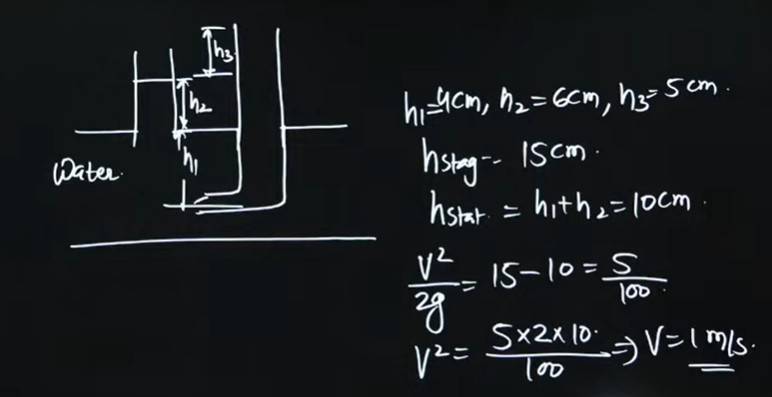 h₃
h₂
h₁
Water.
h₁=4cm, h₂=6cm, h₃=5cm.
hstag = 15cm.
hstat. = h₁+h₂=10cm.
V²/2g = 15-10 = 5/100.
V² = 5×2×10./100 ⇒ V=1 m/s.